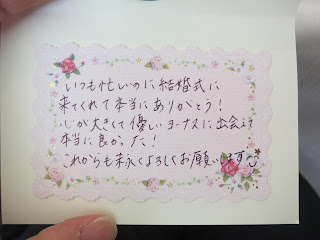 いつも忙しいのに結婚式に
来てくれて本当にありがとう!
心が大きくて優しいヨーナスに出会えて
本当に良かった!
これからも末永くよろしくお願いします